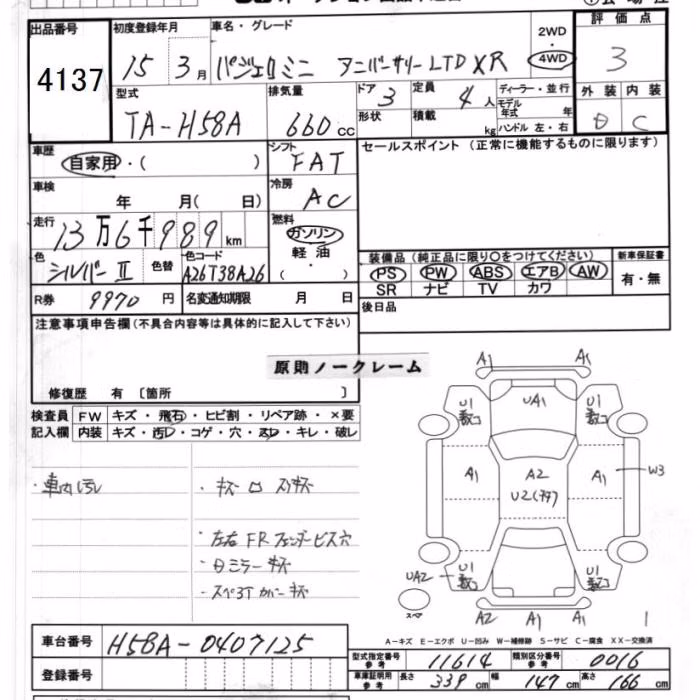 出品番号
4137
初度登録年月
15 3月
車名・グレード
パジェロミニ アニバーサリーLTD XR
2WD
・
4WD
評価点
3
外装 内装
C
型式
TA-H58A
排気量
660cc
ドア 3
形状
定員 4人
積載 kg
ディーラー・並行
モデル年式 年
ハンドル 左・右
車歴
自家用・( )
シフト
FAT
セールスポイント (正常に機能するものに限ります)
車検
年 月( 日)
冷房
AC
走行
13万6千989km
燃料
ガソリン
軽油
( ・ )
色
シルバーII
色替
色コード
A26T38A26
装備品 (純正品に限り○をつけてください)
PS PW ABS エアB AW
SR ナビ TV カワ
新車保証書
有・無
R券 9970円
名変通知期限 月 日
後日品
注意事項申告欄(不具合内容等は具体的に記入して下さい)
原則ノークレーム
修復歴 有 〔箇所 〕
検査員記入欄
FW キズ・飛石・ヒビ割・リペア跡・×要
内装 キズ・汚レ・コゲ・穴・スレ・キレ・破レ
・車内汚レ
・キズ
・左右FRフェンダービス穴
・日ミラーキズ
・スペアTカバーキズ
A1 A1
U1 UA1 U1
A1 A2 A1 W3
U2
U1 U1
UA2
スペア
A2 A1 A1
1
A-キズ E-エクボ U-凹み W-補修跡 S-サビ C-腐食 XX-交換済
車台番号 H58A-0407125
登録番号
型式指定番号参考 11614
類別区分番号参考 0016
車庫証明用参考 長さ 339cm 幅 147cm 高さ 166cm